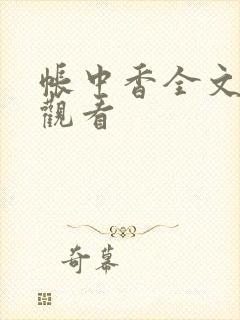 帳中香全文
觀看
奇幕